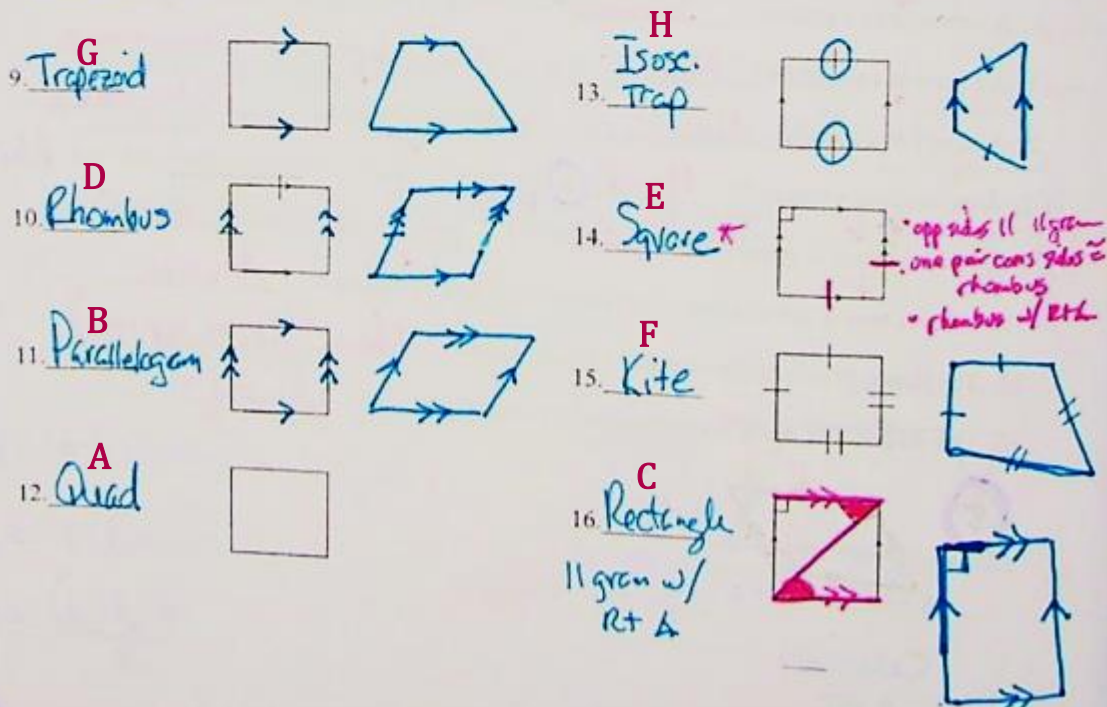 G
9. Trapezoid
D
10. Rhombus
B
11. Parallelogam
A
12. Quad
H
Isosc.
13. Trap
E
14. Square *
• opp sides || ||gram
• one pair cons sides ≅
rhombus
• rhombus w/ Rt ∠
F
15. Kite
C
16. Rectangle
|| gram w/
Rt ∡